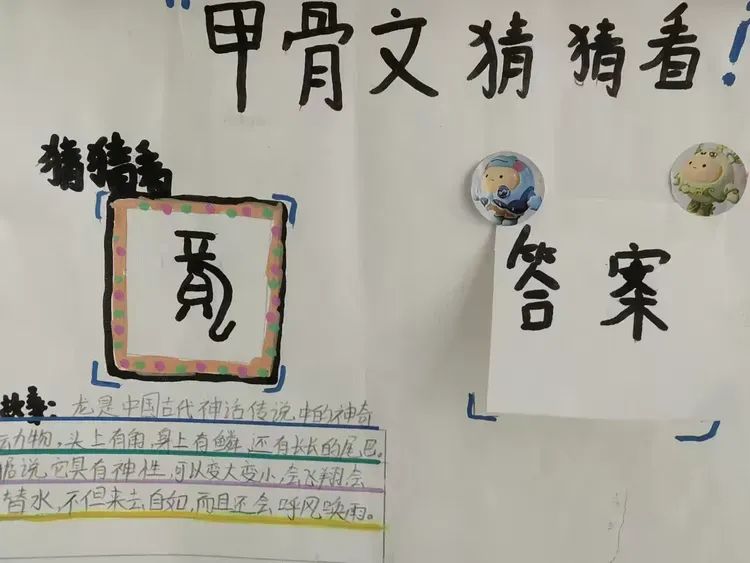 "甲骨文猜猜看!
猜猜看
答案
故事:龙是中国古代神话传说中的神奇
动物,头上有角,身上有鳞,还有长长的尾巴。
据说它具有神性,可以变大变小,会飞翔会
替水,不但来去自如,而且还会呼风唤雨。